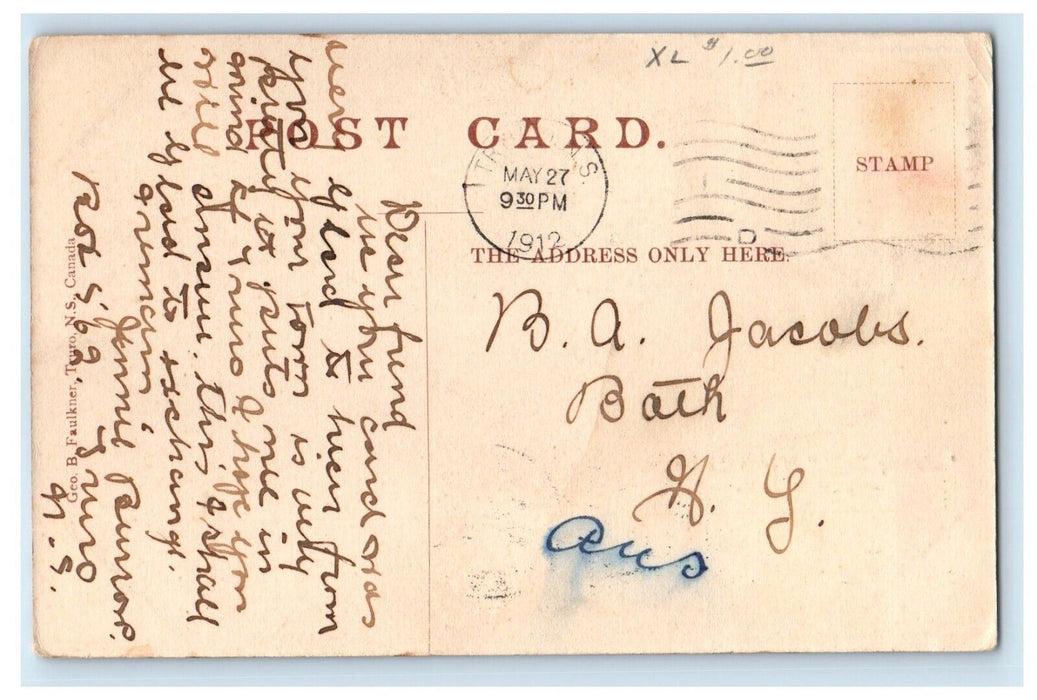 XL $1.00
POST CARD.
MAY 27
9 30 PM
1912
STAMP
THE ADDRESS ONLY HERE.
B. A. Jacobs.
Bath
N. Y.
Ans
Dear friend
your card was
very glad to hear from
you your town is very
pretty it puts me in
mind of Truro I hope you
will answer this, I shall
be glad to exchange.
I remain
Jennie
Box Truro
N.S.
Geo. B. Faulkner, Truro, N.S., Canada